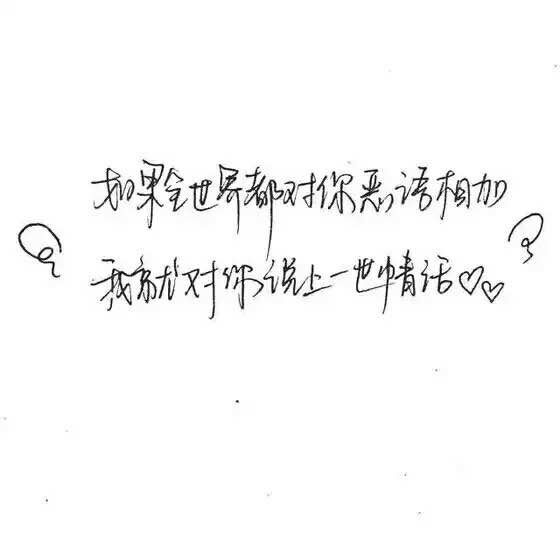 如果全世界都对你恶语相加
我就对你说上一世情话♡♡